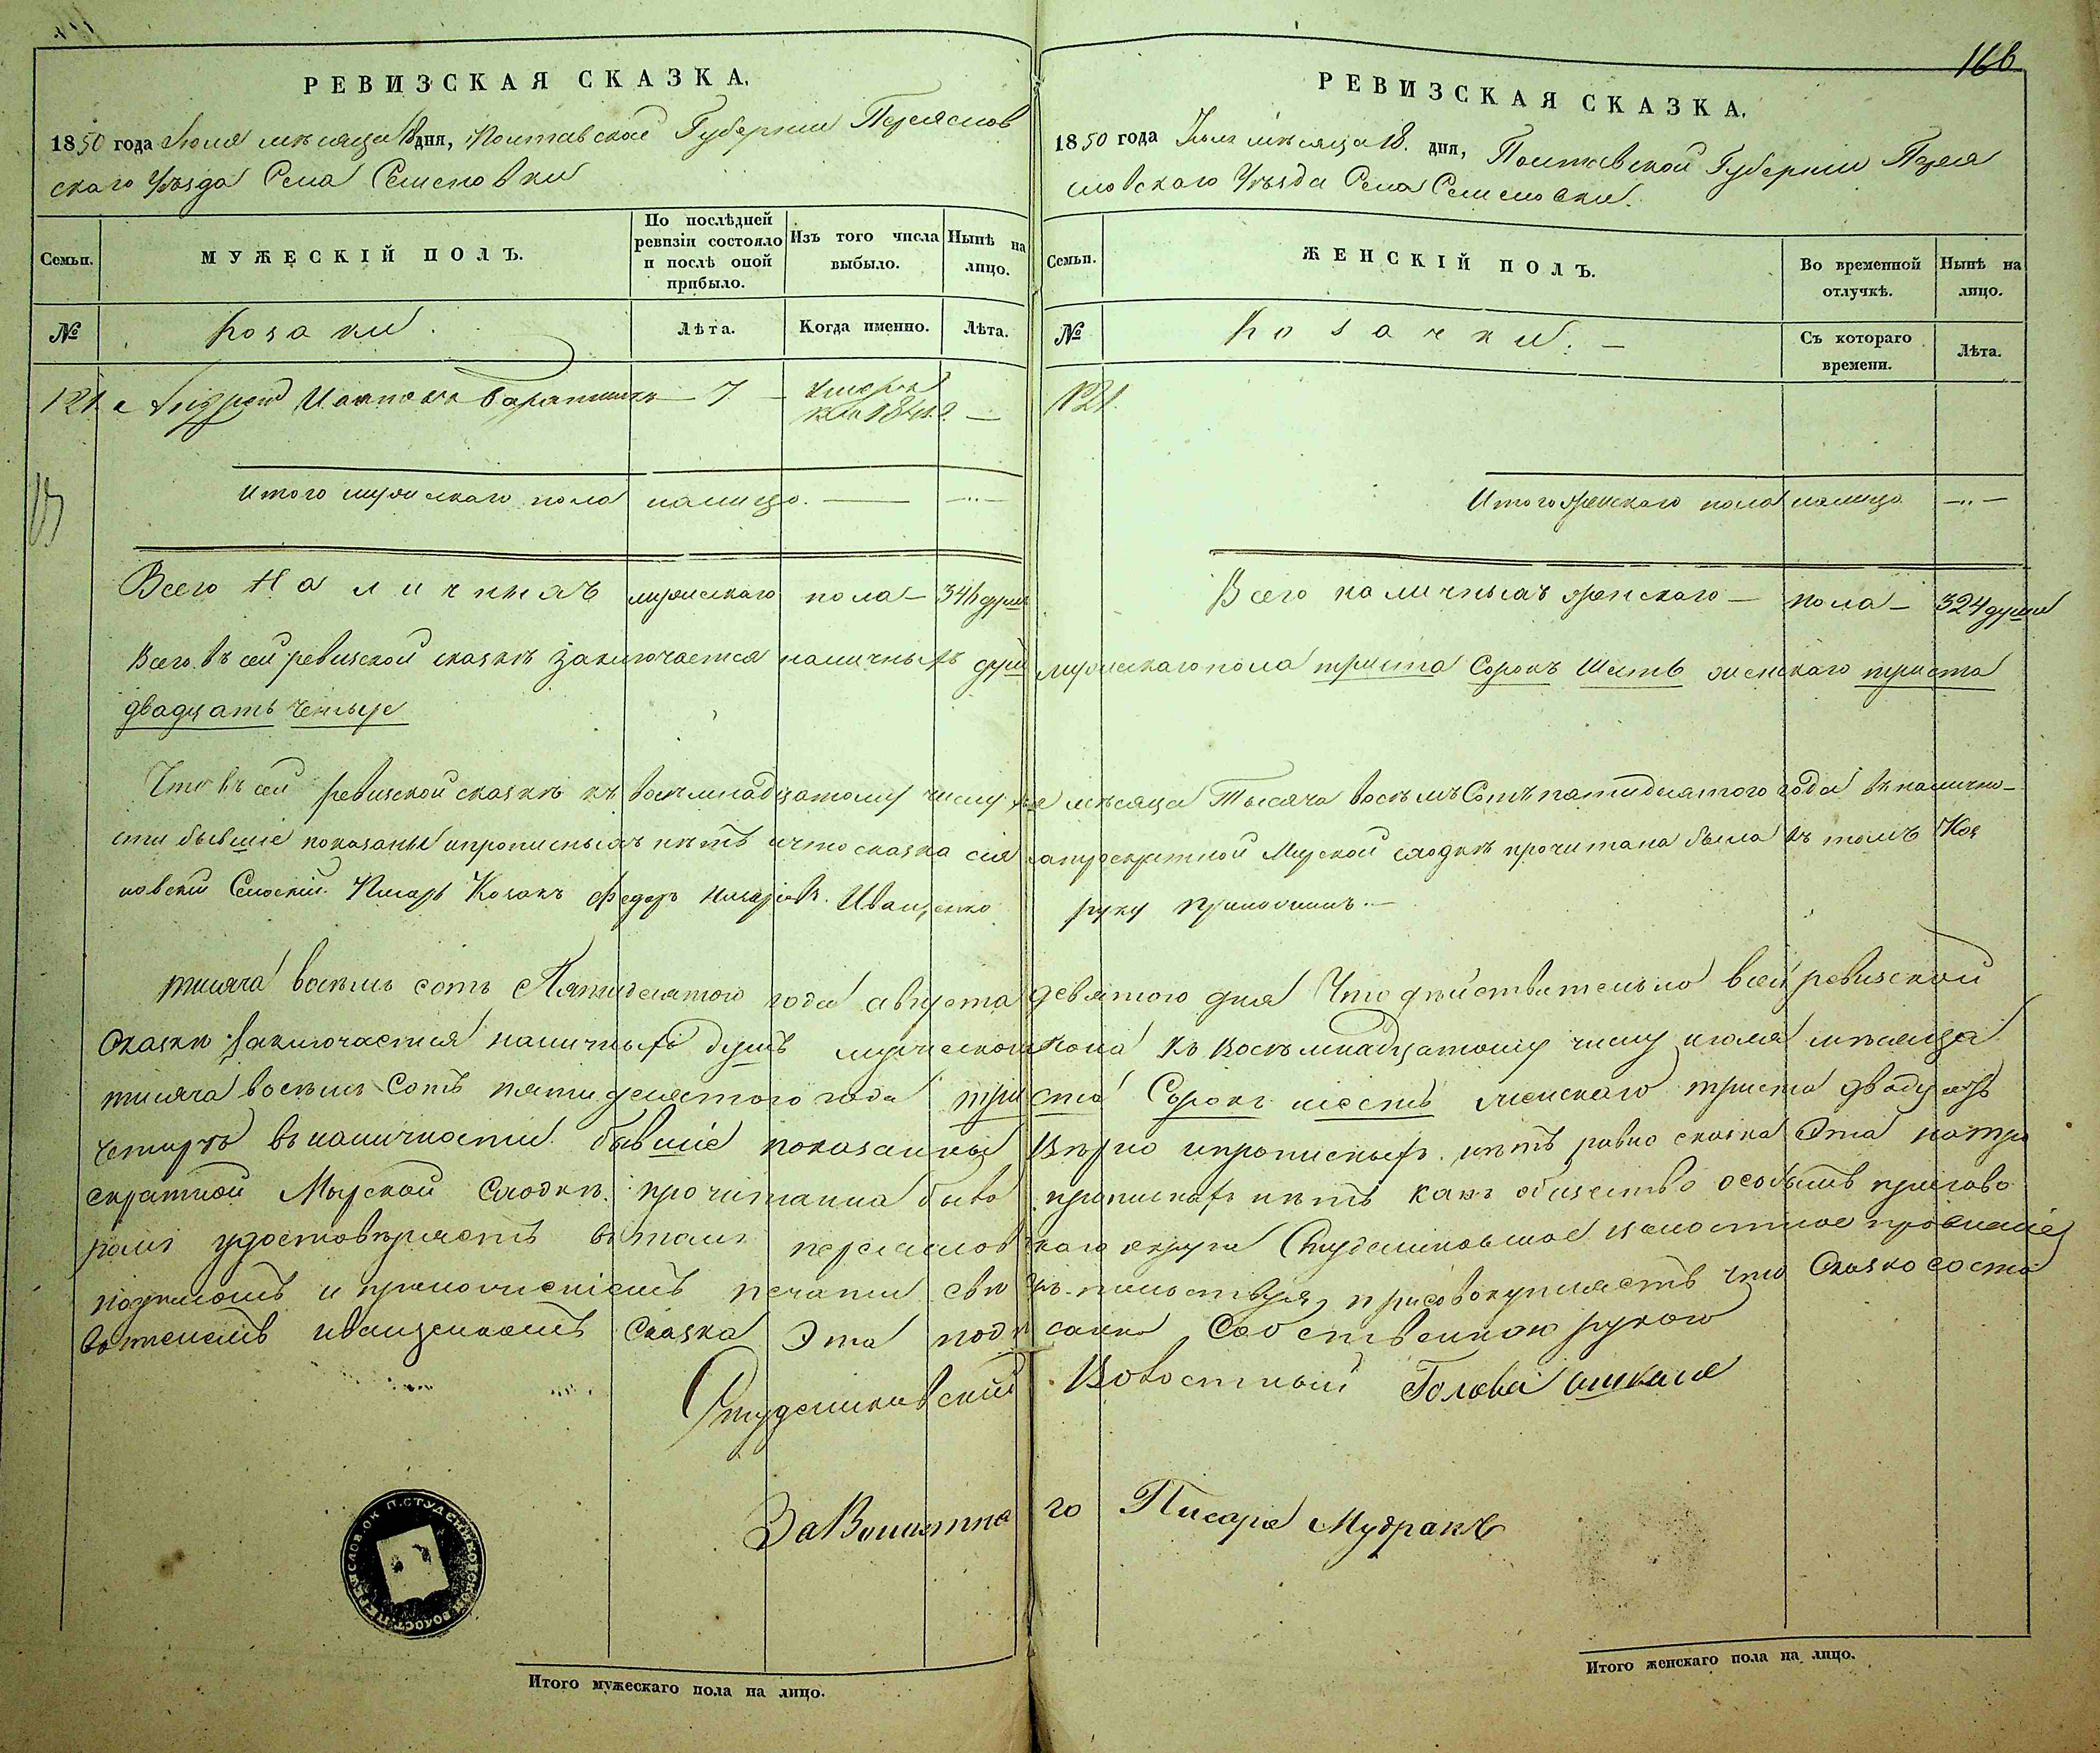 166
РЕВИЗСКАЯ СКАЗКА.
1850 года Июля мѣсяца 18 дня, Полтавской Губерніи Переяслов
скаго Уѣзда Села Семеновки
Семьи.
МУЖЕСКІЙ ПОЛЪ.
По послѣдней ревизіи состояло и послѣ оной прибыло.
Изъ того числа выбыло.
Нынѣ на лицо.
№
Козаки.
Лѣта.
Когда именно.
Лѣта.
121. Андрей 7 — 
Итого мужескаго пола налицо. — —
Всего Наличныхъ мужескаго пола — 346 душъ
РЕВИЗСКАЯ СКАЗКА.
1850 года Іюля мѣсяца 18. дня, Полтавской Губерніи Перея
словскаго Уѣзда Села Семеновки.
Семьи.
ЖЕНСКІЙ ПОЛЪ.
Во временной отлучкѣ.
Нынѣ на лицо.
№
Козачки. —
Съ котораго времени.
Лѣта.
121.
Итого женскаго пола налицо — —
Всего наличныхъ женскаго — пола — 324 души
Всего въ сей ревизской сказкѣ заключается наличныхъ душъ мужескаго пола триста Сорокъ Шесть женскаго триста
двадцать Четыре
Что въ сей ревизской сказкѣ къ восемнадцатому числу мѣсяца Тысяча восемъ Сотъ пятидесятого года въ налично-
сти бывшіе показаны и прописныхъ нѣтъ и что сказка сія на трехкратной Мирской сходкѣ прочитана была въ томъ
Сельскій Писарь Козакъ Федоръ Иващенко руку Приложилъ. —
тисяча восемъ сотъ Пятидесятого года августа девятого дня Что дѣйствительно въ сей ревизской
Сказкѣ заключается наличныхъ душъ мужескаго пола къ восемнадцатому числу июля мѣсяца
тисяча восемъ Сотъ пятидесятого года триста Сорокъ шесть женскаго триста двадцать
четыре въ наличности бывшіе показанны Вѣрно и прописныхъ нѣтъ равно сказка Эта на трех
скратной Мырской Сходкѣ прочитанна была прописныхъ нѣтъ какъ общество особымъ пригово
ромъ удостовѣряетъ въ томъ переясловскаго округа Студениковское волостное правленіе
подписомъ и приложеніемъ печати свидѣтельствуя присовокупляетъ что Сказка соста
вителемъ иващенкомъ Сказка Эта подписанна Собственною рукою
Студениковский Волостный Голова
За Волостнаго Писаря Мудракъ
Итого мужескаго пола на лицо.
Итого женскаго пола на лицо.